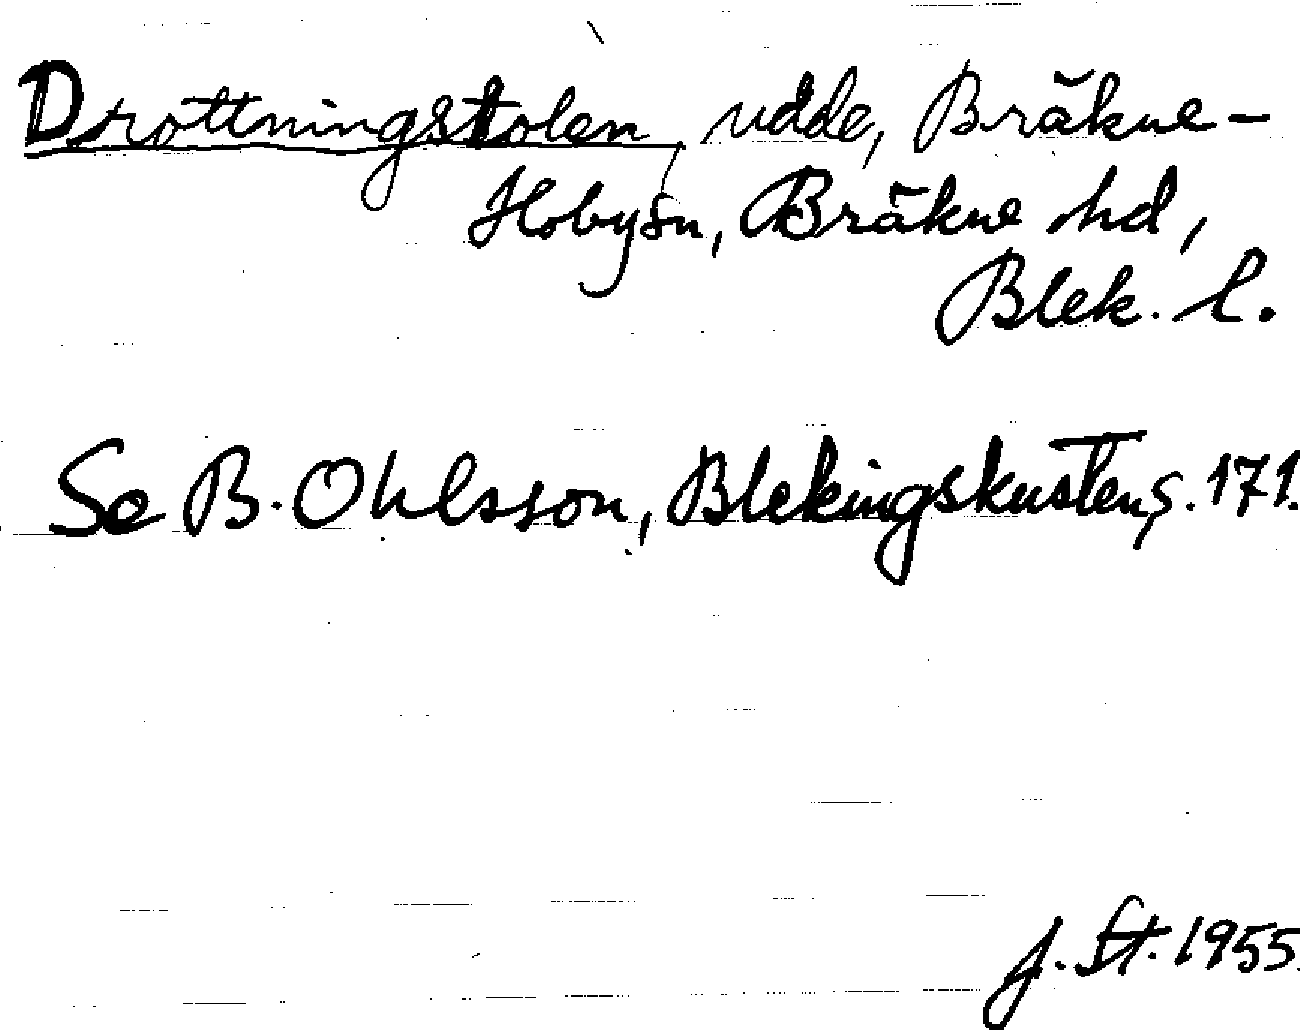 Drottningstolen, udde, Bräkne-
Hobysn, Bräkne hd,
Blek. l.
Se B. Ohlsson, Blekingskusten, s. 171.
J. St. 1955.